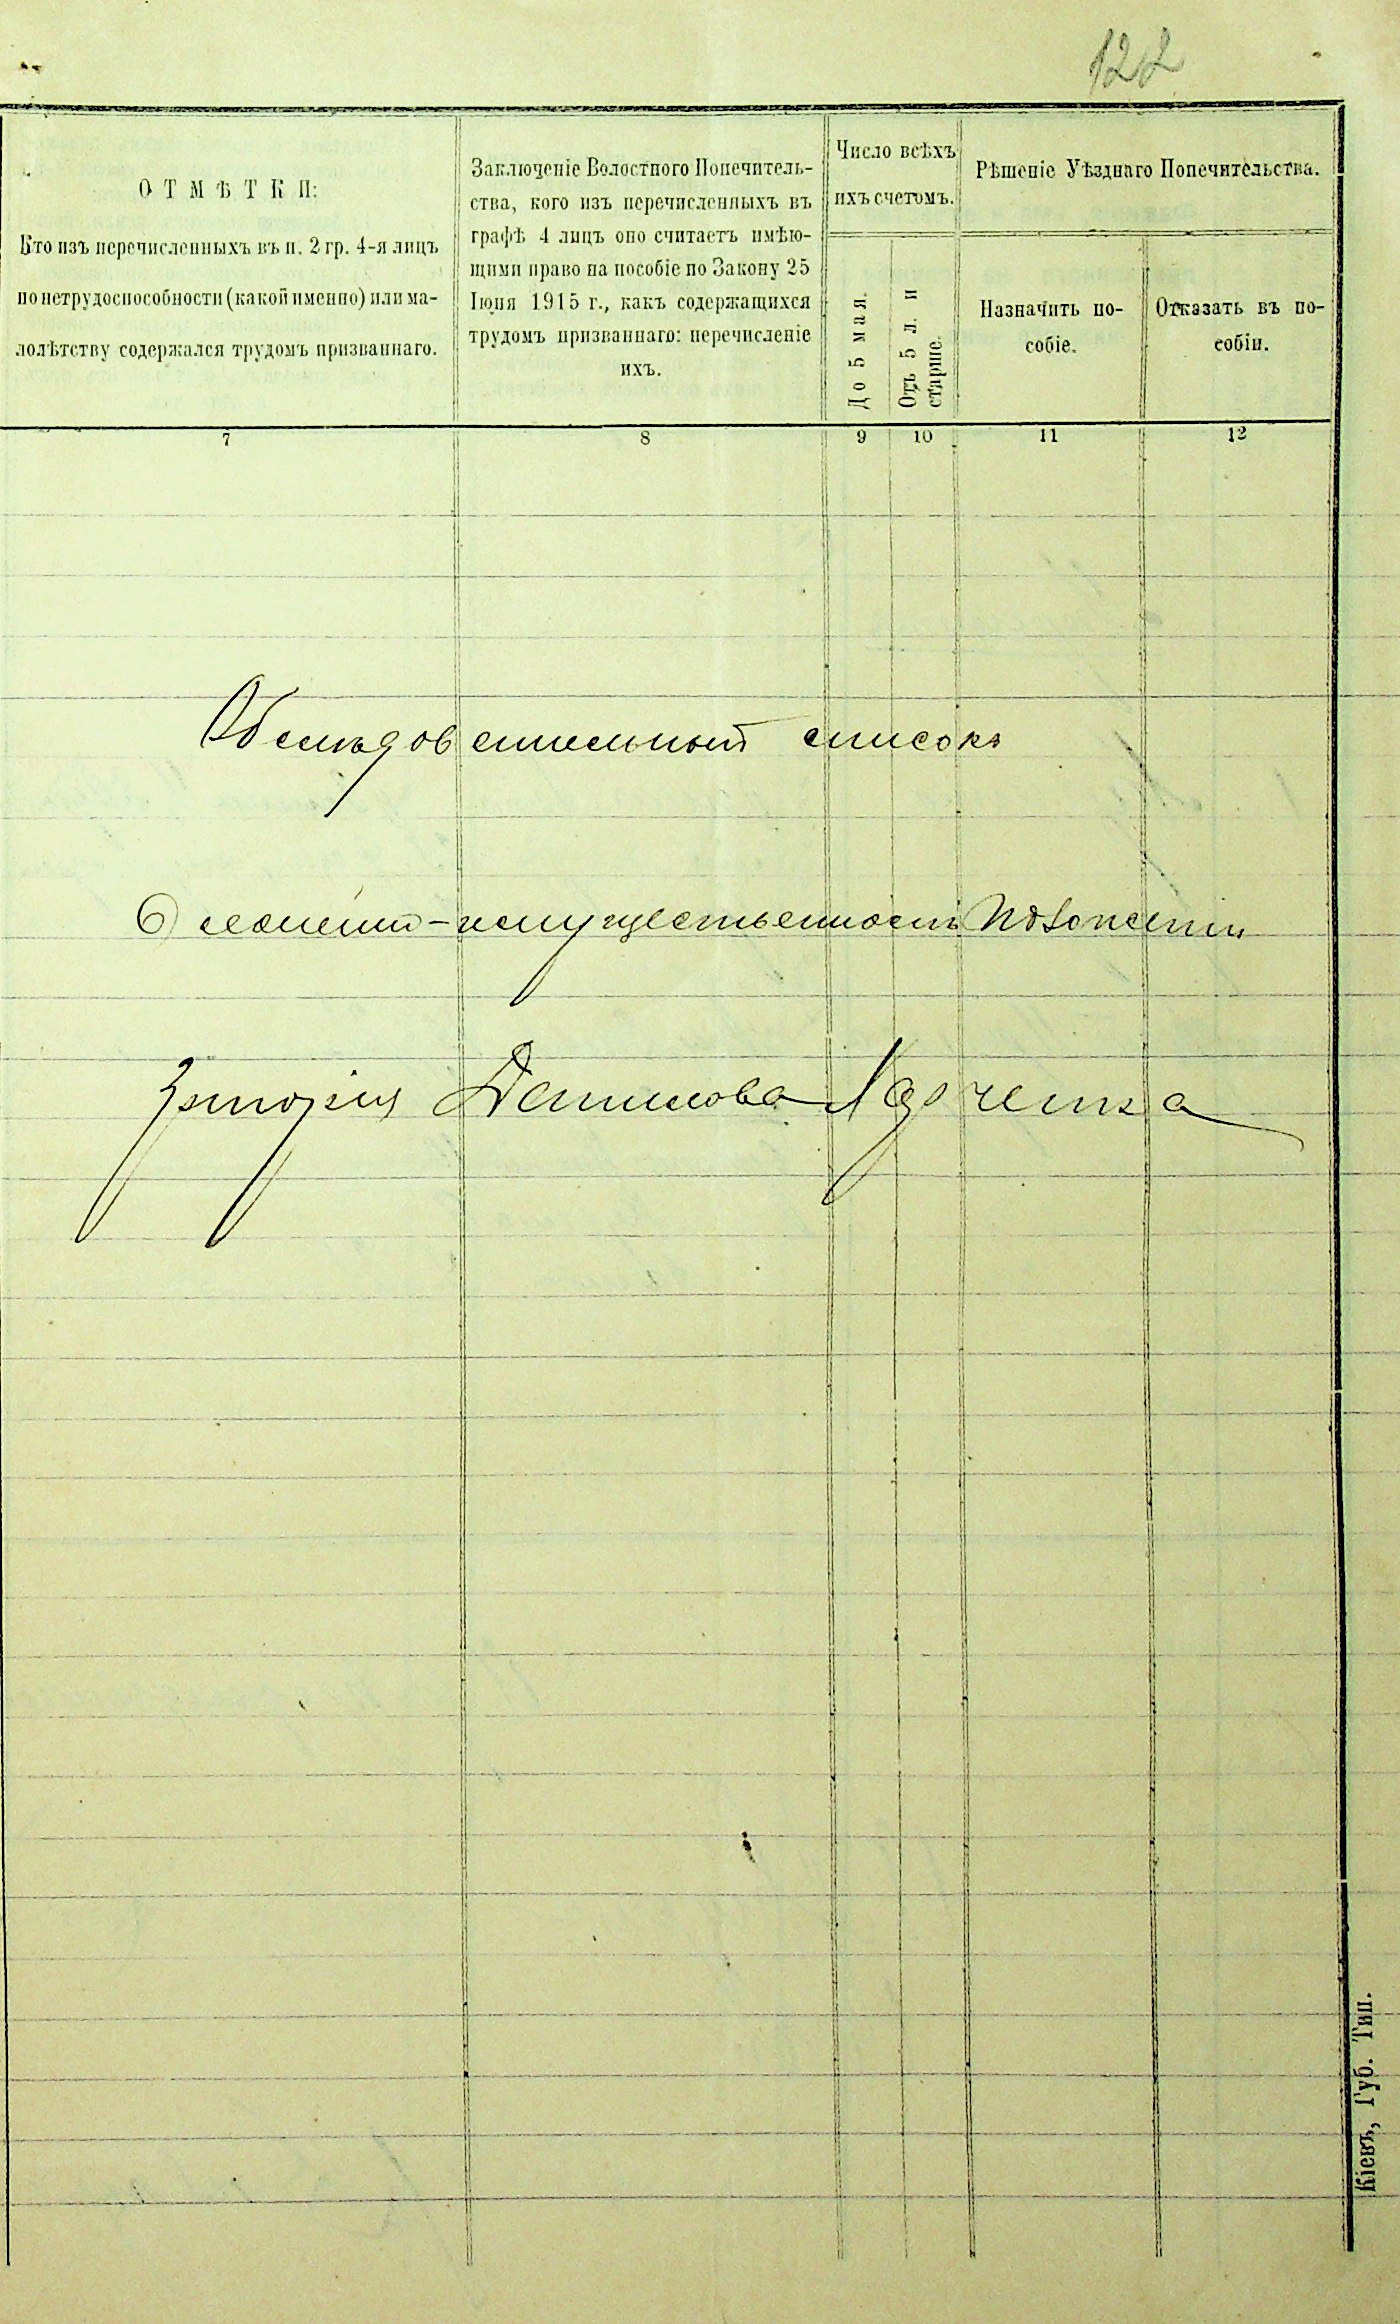 122
ОТМѢТКИ:
Кто изъ перечисленныхъ въ п. 2 гр. 4-я лицъ
по нетрудоспособности (какой именно) или ма-
лолѣтству содержался трудомъ призваннаго.
Заключеніе Волостного Попечитель-
ства, кого изъ перечисленныхъ въ
графѣ 4 лицъ оно считаетъ имѣю-
щими право на пособіе по Закону 25
Іюня 1915 г., какъ содержащихся
трудомъ призваннаго: перечисленіе
ихъ.
Число всѣхъ
ихъ счетомъ.
До 5 мая.
Отъ 5 л. и
старше.
Рѣшеніе Уѣзднаго Попечительства.
Назначить по-
собіе.
Отказать въ по-
собіи.
7 8 9 10 11 12
список
О семейно-имущественности положении
Григорія Данилова
Кіевъ, Губ. Тип.